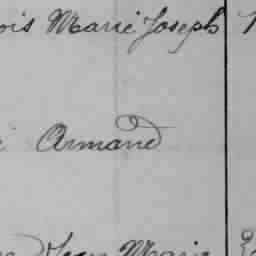 ois Marie Joseph
Armand
Jean Marie